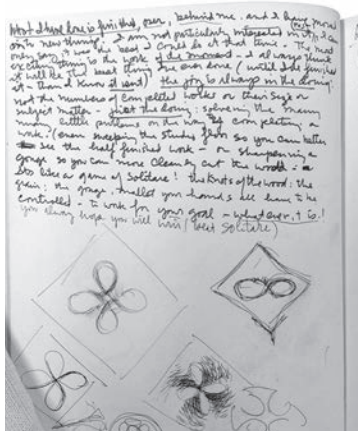 What I have done is finished, over, behind me. and I have moved
onto new things. I am not particularly interested in it, I can
only say, it was the best I could do at that time. The most
exciting thing is the work of the moment - I always think
it will be the best thing I have ever done (until I finished
it - then I know it isn't) the joy is always in the doing.
not the numbers of completed works or their size or
subject matter - just the doing: solving the many
many little problems on the way of completing a
work: (even sweeping the studio floor so you can better
see the half finished work - or sharpening a
gouge so you can more cleanly cut the wood -
its like a game of solitaire! the knots of the wood: the
grain: the gouge. mallet your hands all have to be
controlled - to work for your goal - whatever it is!
you always hope you will win (beat solitaire)